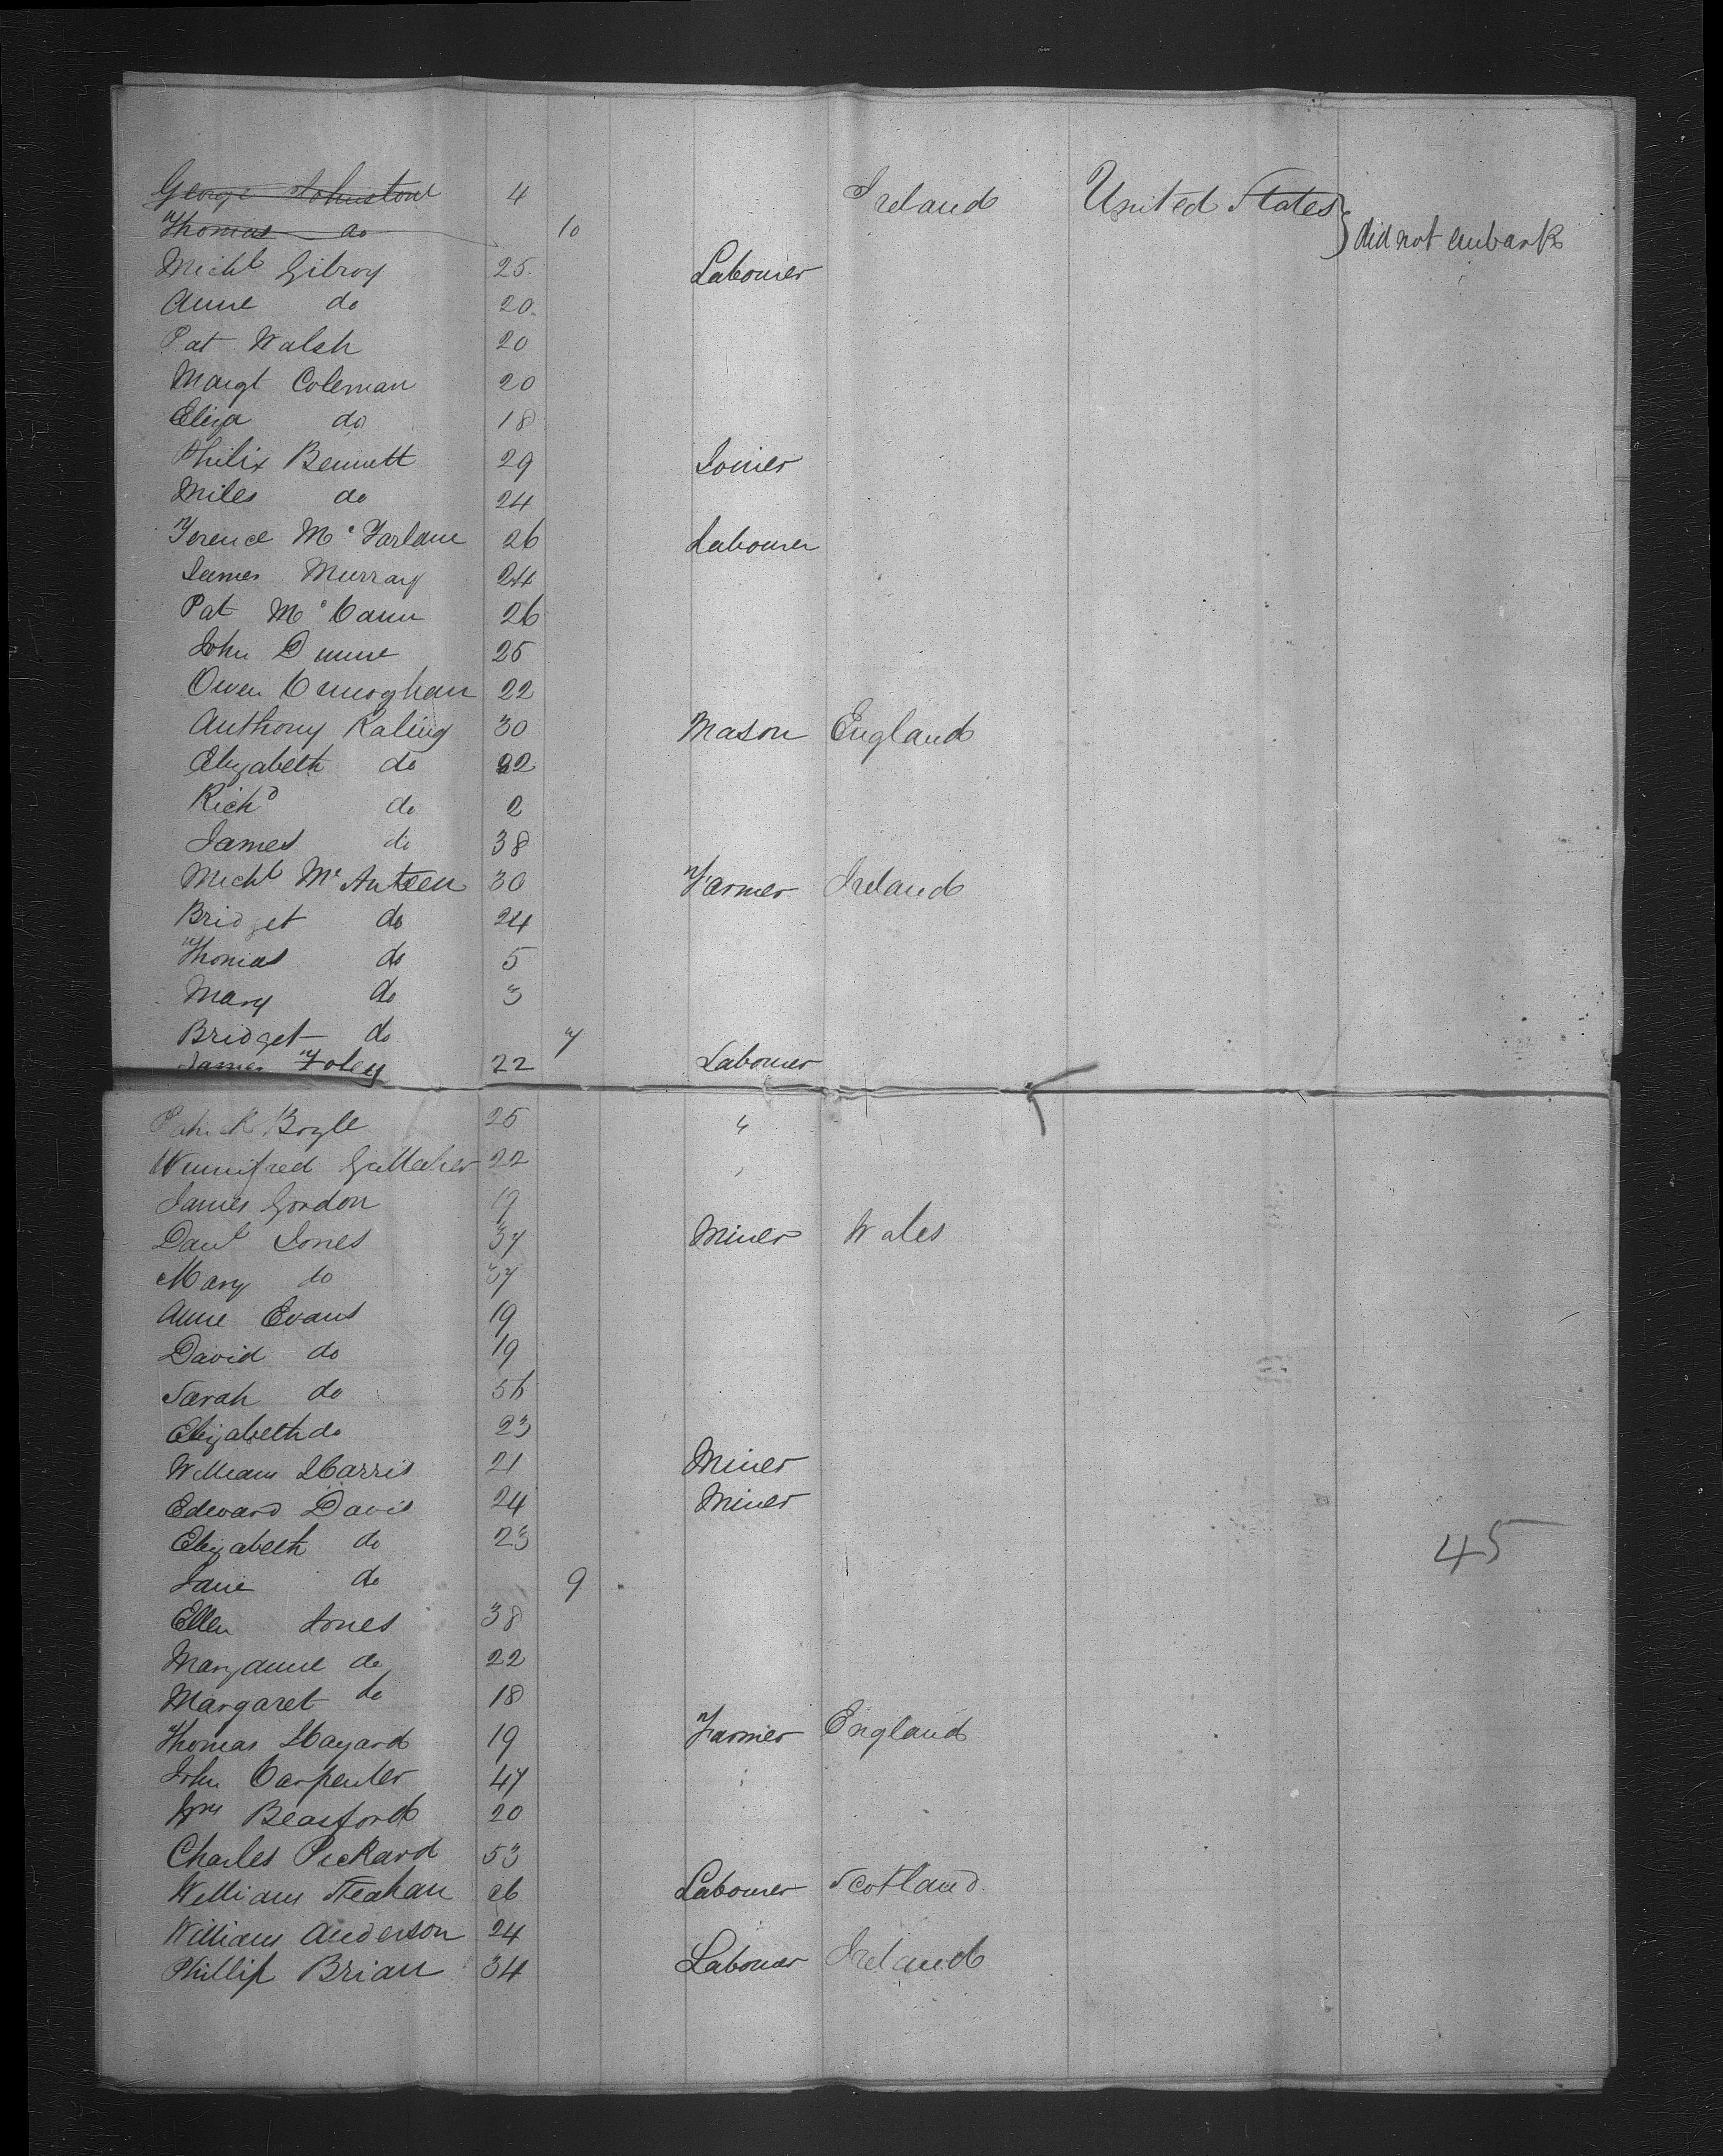 George Johnston 4 Ireland United States
Thomas do 10 } did not embark
Michl Gilroy 25 Labourer
Anne do 20
Pat Walsh 20
Margt Coleman 20
Eliza do 18
Philix Bennett 29 Joiner
Miles do 24
Terence Mc Farlane 26 Labourer
James Murray 24
Pat Mc Cann 26
John Dunne 25
Owen 22
Anthony Raling 30 Mason England
Elizabeth do 22
Richd do 2
James do 38
Michl Mc Anteen 30 Farmer Ireland
Bridget do 24
Thomas do 5
Mary do 3
Bridget do 7
James Foley 22 Labourer
Patrick Boyle 25 "
Winnifred Gallecher 22 "
James Gordon 19
Danl Jones 37 Miner Wales
Mary do 37
Anne Evans 19
David do 19
Sarah do 56
Elizabeth do 23
William Harris 21 Miner
Edward Davis 24 Miner
Elizabeth do 23
45
Jane do 9
Ellen Jones 38
Maryanne do 22
Margaret do 18
Thomas Hayard 19 Farmer England
John Carpenter 47 "
Wm Beasford 20
Charles Pickard 53
William Steahan 26 Labourer Scotland
William Anderson 24
Phillip Brian 34 Labourer Ireland